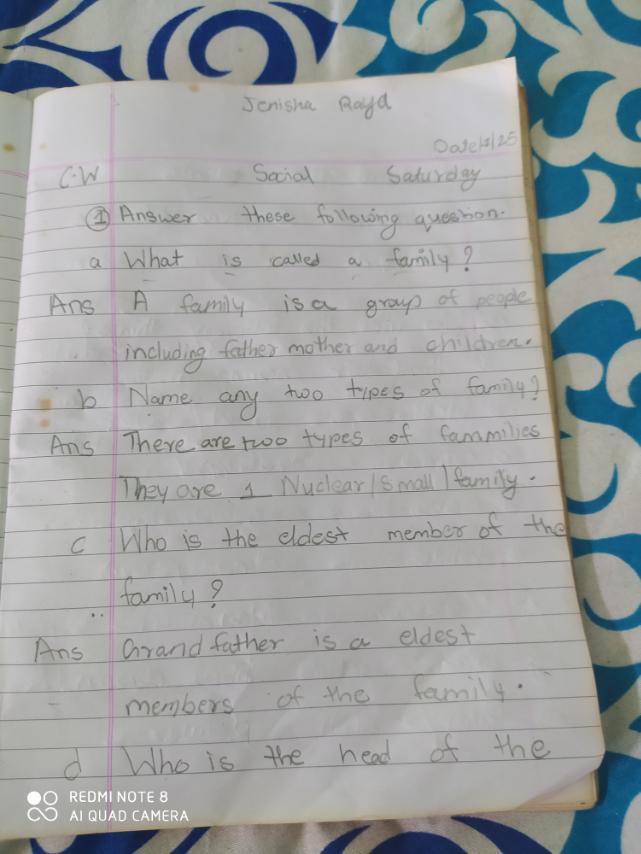 Jenisha Rayd
Date 1/25
C.W Social Saturday
① Answer these following question.
a What is called a family?
Ans A family is a group of people
including father mother and children.
b Name any two types of family?
Ans There are two types of fammilies
They are 1 Nuclear/small/family.
c Who is the eldest member of the
family?
Ans Grand father is a eldest
members of the family.
d Who is the head of the
REDMI NOTE 8
AI QUAD CAMERA